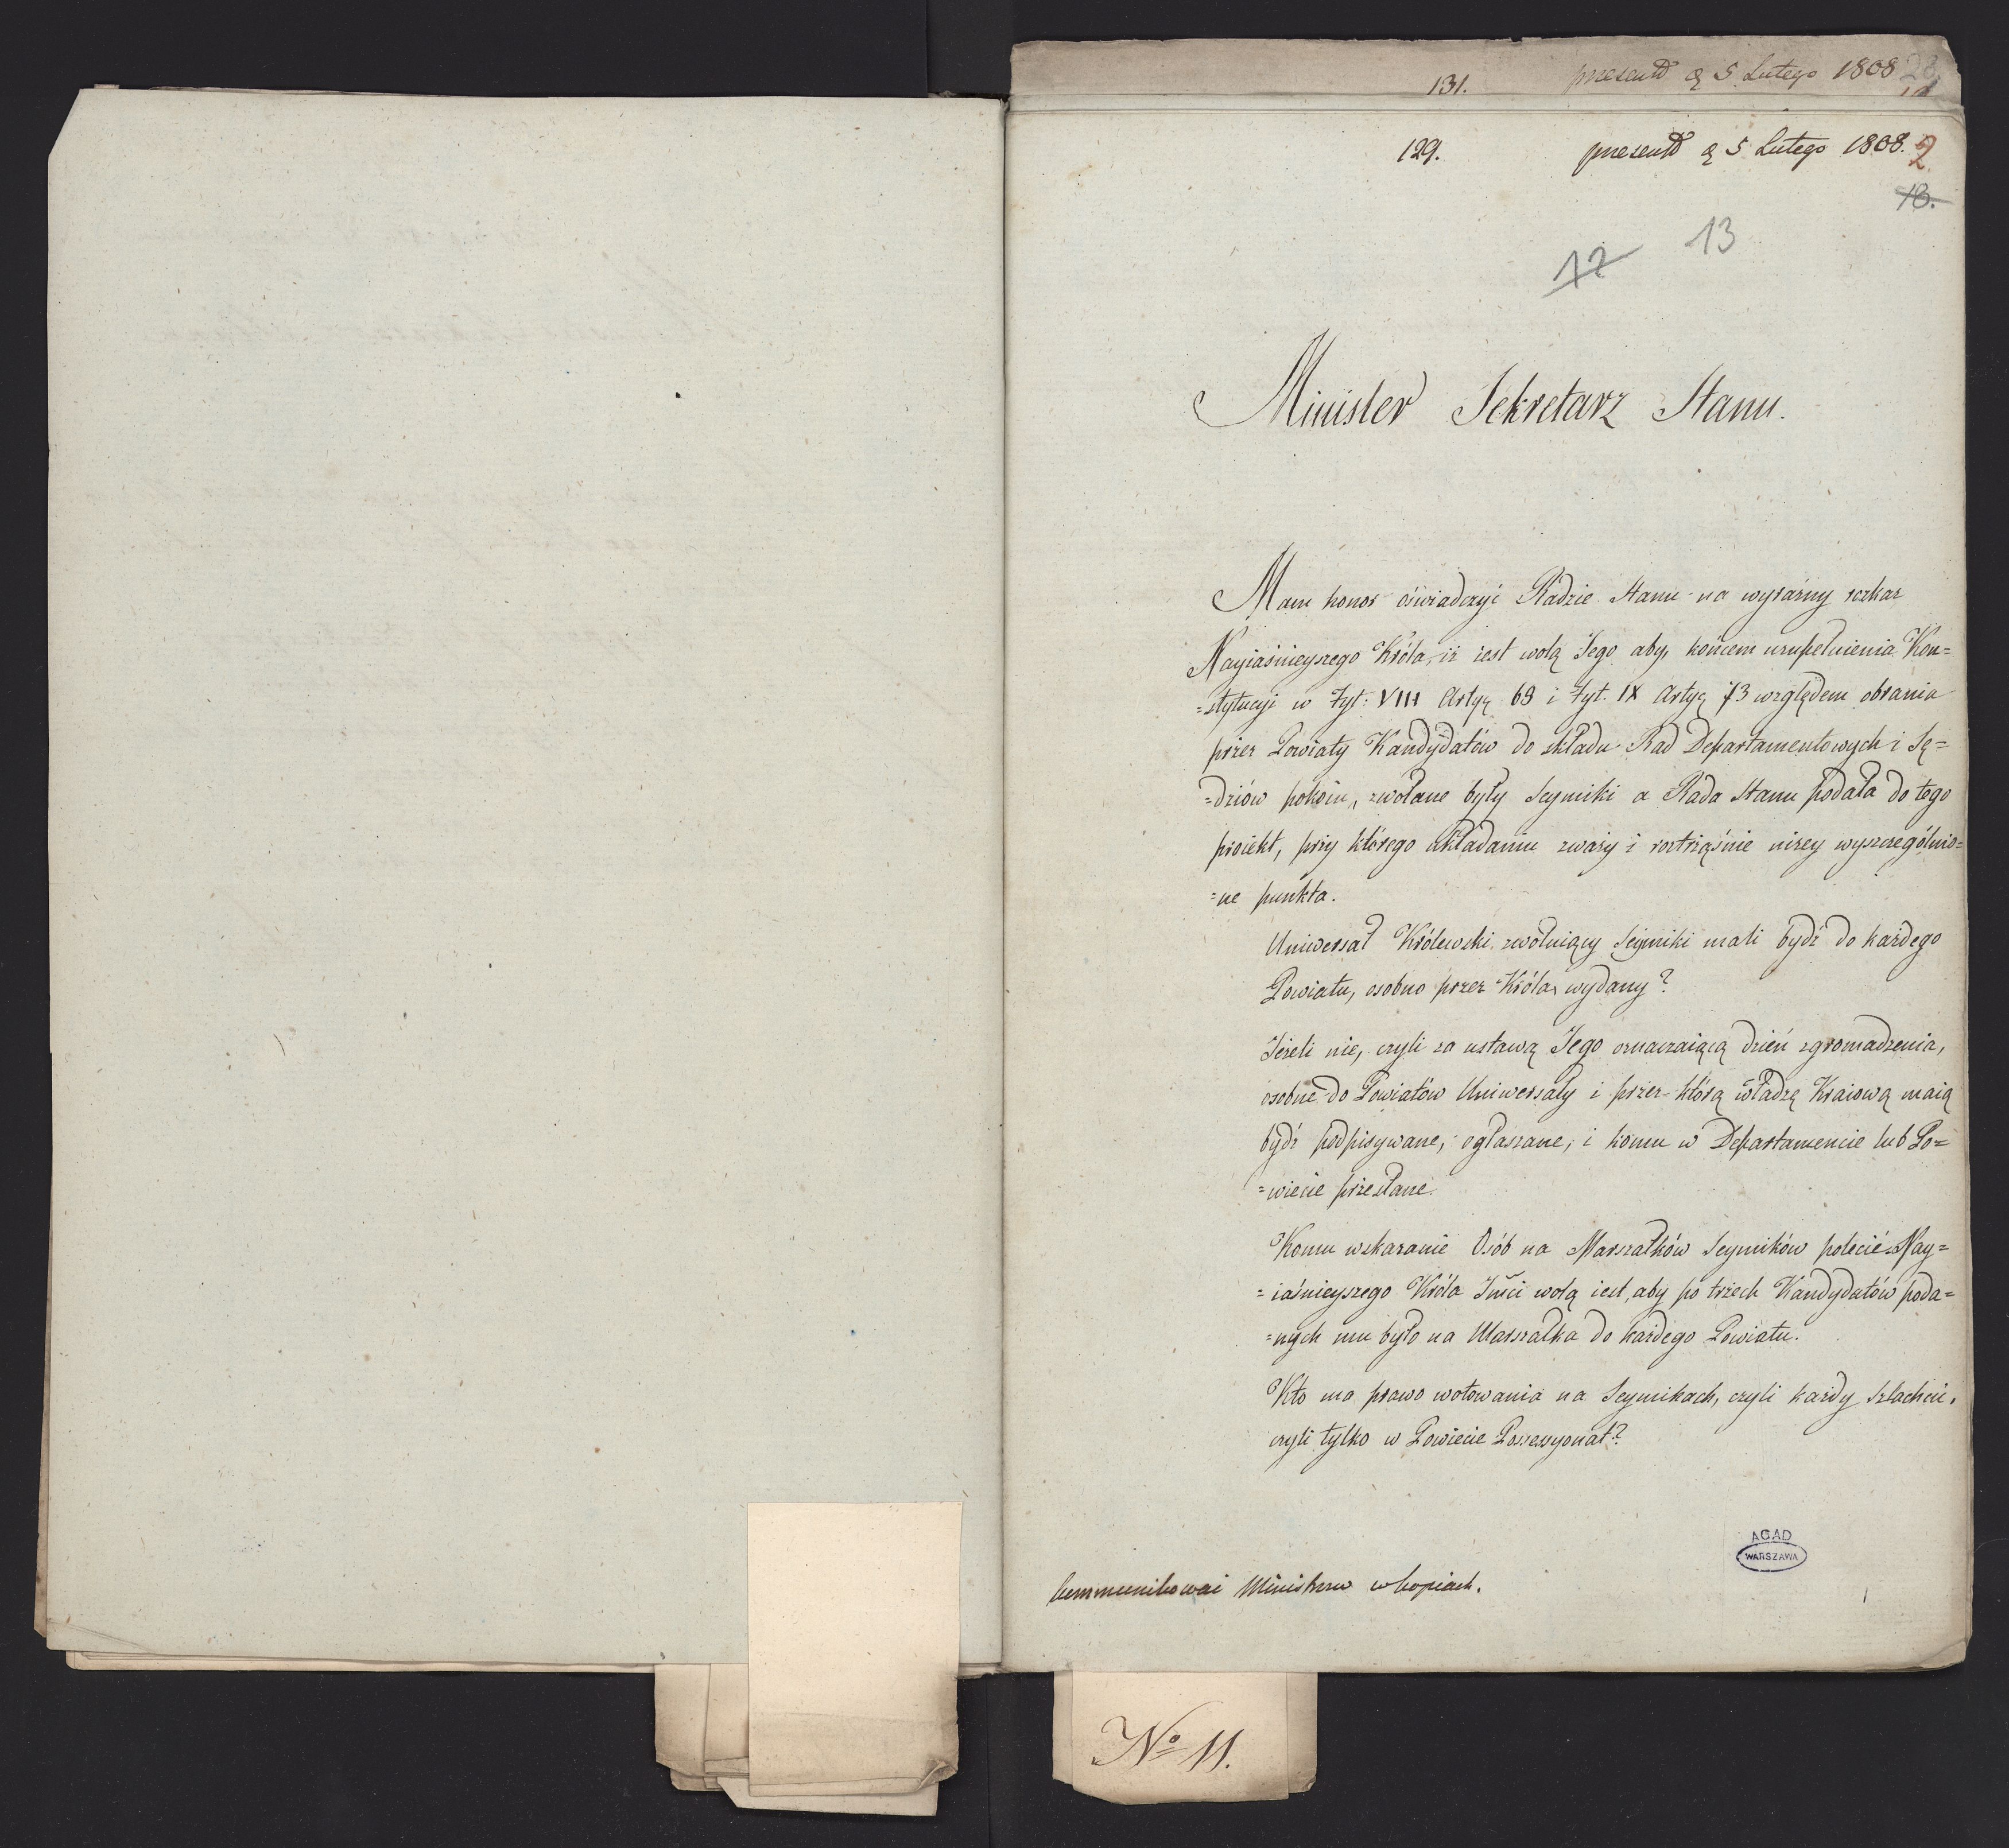 131. presentd. 5 Lutego 1808
129. presentd. 5 Lutego 1808. 2
13.
12 13
Minister Sekretarz Stanu.
Mam honor oświadczyć Radzie Stanu na wyraźny rozkaz
Nayiaśnieyszego Króla, iż iest wolą Jego aby, końcem uzupełnienia Kon=
=stytucyi w Tyt: VIII Arty 69 i Tyt. IX Arty 73 względem obrania
przez Powiaty Kandydatów do składu Rad Departamentowych i Sę=
=dziów pokoiu, zwołane były Seymiki a Rada Stanu podała do tego
proiekt, przy którego układaniu zważy i roztrząśnie niżey wyszczególnio=
=ne punkta.
Uniwersał Królewski zwołuiący Seymiki mali bydź do każdego
Powiatu, osobno przez Króla wydany?
Jeżeli nie, czyli za ustawą Jego oznaczaiącą dzień zgromadzenia,
osobne do Powiatów Uniwersały i przez którą władzę Kraiową maią
bydź podpisywane, ogłaszane, i komu w Departamencie lub Po=
=wiecie przesłane.
Komu wskazanie Osób na Marszałków Seymików polecić. Nay=
=iaśnieyszego Króla Jmci wolą iest, aby po trzech Kandydatów poda=
=nych mu było na Marszałka do każdego Powiatu.
Kto ma prawo wotowania na Seymikach, czyli każdy Szlachcic,
czyli tylko w Powiecie Possessyonat?
AGAD
WARSZAWA
kommunikować Ministrow w kopiach.
No 11.